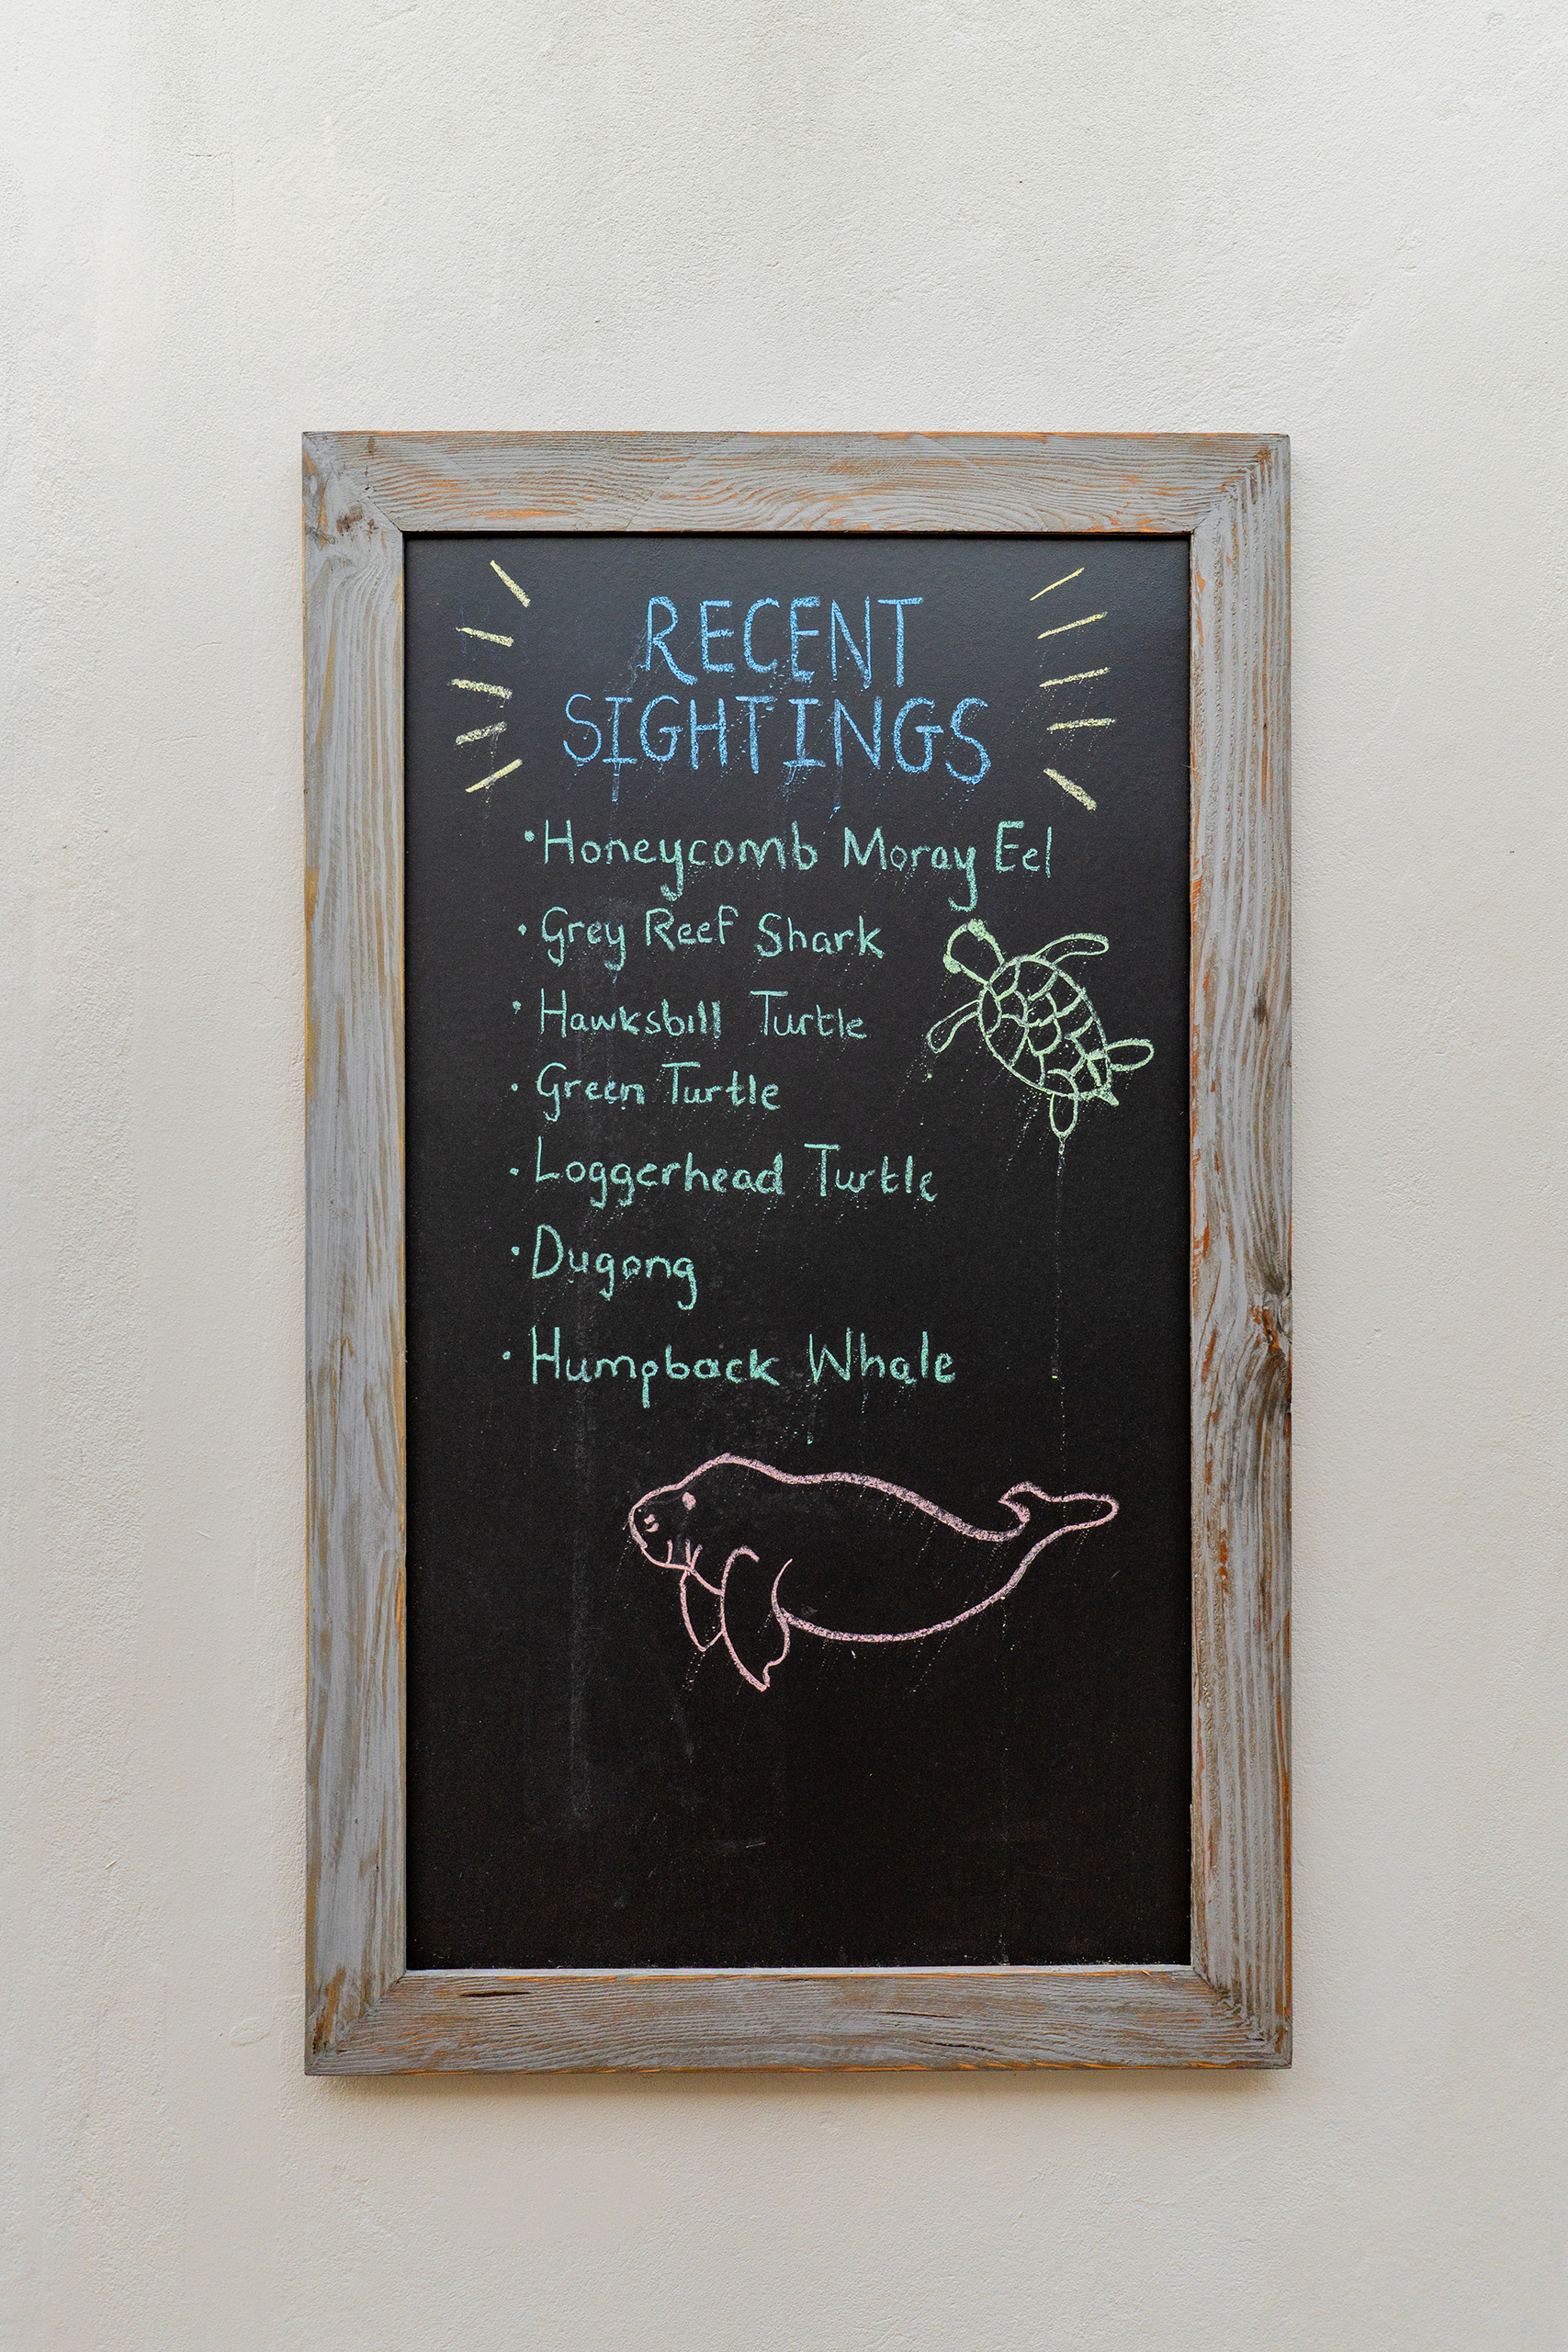 RECENT
SIGHTINGS
• Honeycomb Moray Eel
• Grey Reef Shark
• Hawksbill Turtle
• Green Turtle
• Loggerhead Turtle
• Dugong
• Humpback Whale